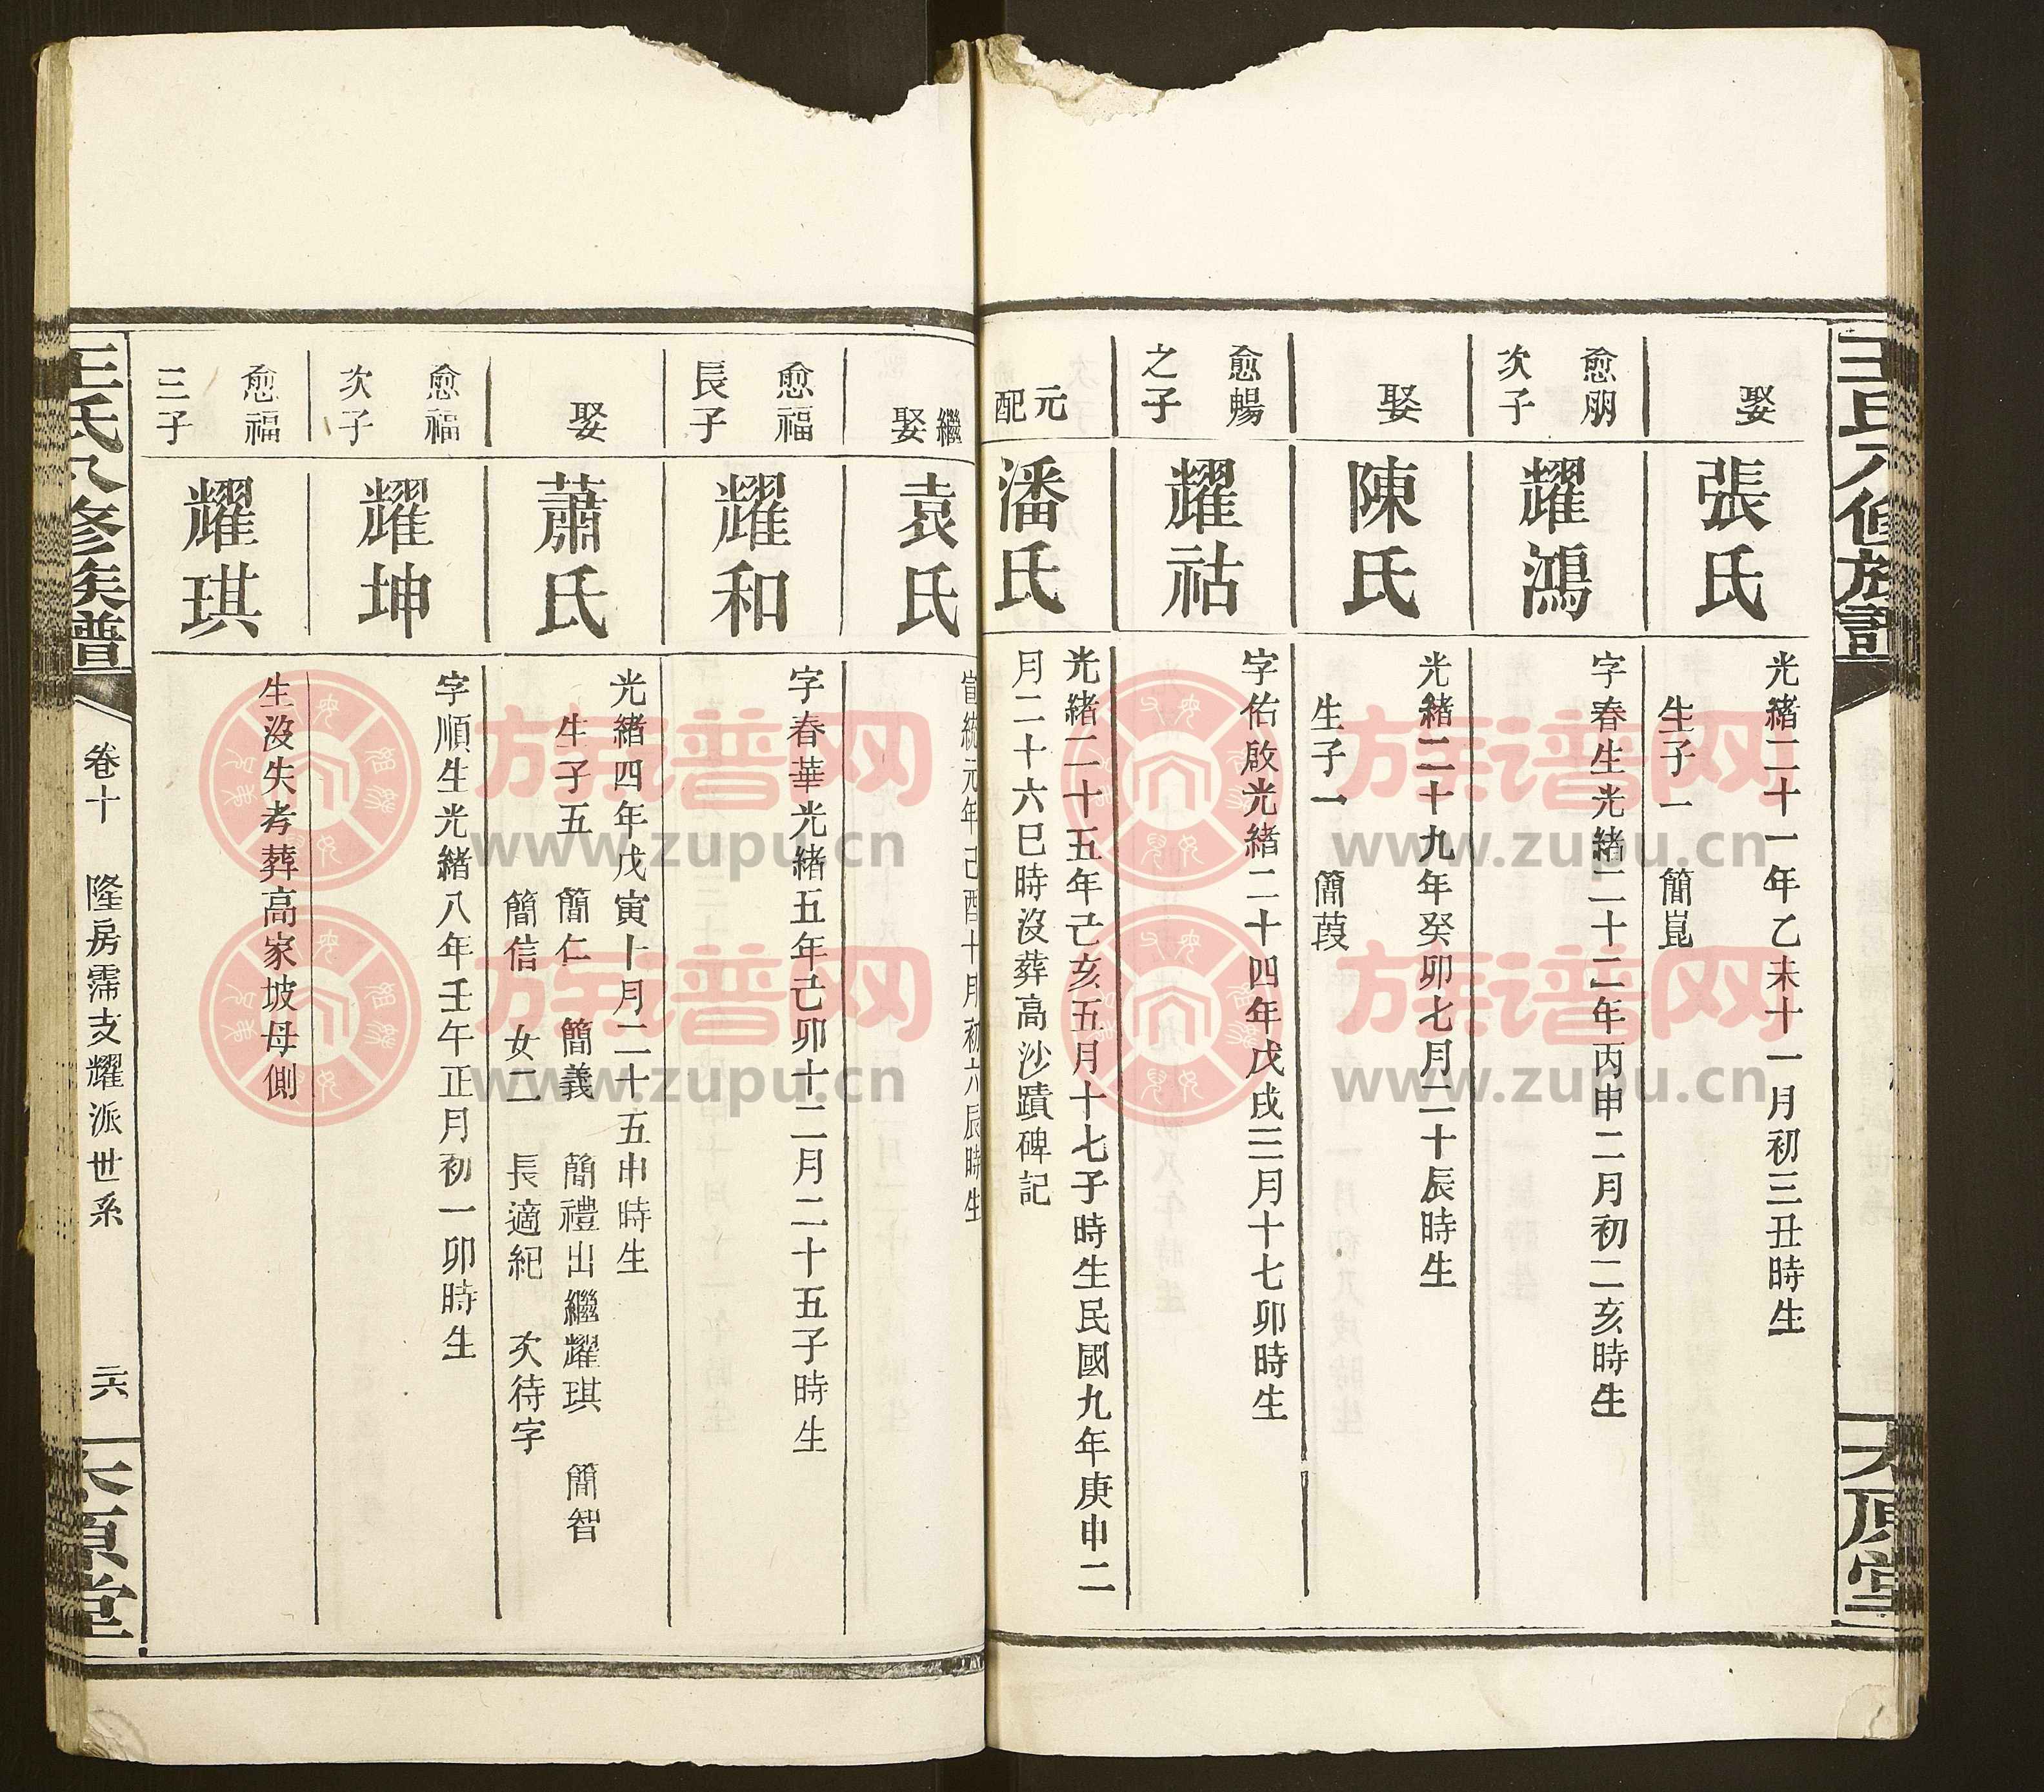 王氏八修族譜
太原堂
娶
張氏
光緒二十一年乙未十一月初三丑時生
生子一 簡崑
愈朋
次子
耀鴻
字春生光緒二十二年丙申二月初二亥時生
娶
陳氏
光緒二十九年癸卯七月二十辰時生
生子一 簡葭
愈暢
之子
耀祜
字佑啟光緒二十四年戊戌三月十七卯時生
元
配
潘氏
光緒二十五年己亥五月十七子時生民國九年庚申二
月二十六巳時沒葬高沙蹟碑記
繼
娶
袁氏
宣統元年己酉十月初六辰時生
愈福
長子
耀和
字春華光緒五年己卯十二月二十五子時生
娶
蕭氏
光緒四年戊寅十月二十五申時生
生子五 簡仁 簡義 簡禮出繼耀琪 簡智
簡信 女二 長適紀 次待字
愈福
次子
耀坤
字順生光緒八年壬午正月初一卯時生
愈福
三子
耀琪
生沒失考葬高家坡母側
王氏八修族譜
卷十 隆房霈支耀派世系
二六
太原堂
族谱网
www.zupu.cn
族谱网
www.zupu.cn
族谱网
www.zupu.cn
族谱网
www.zupu.cn